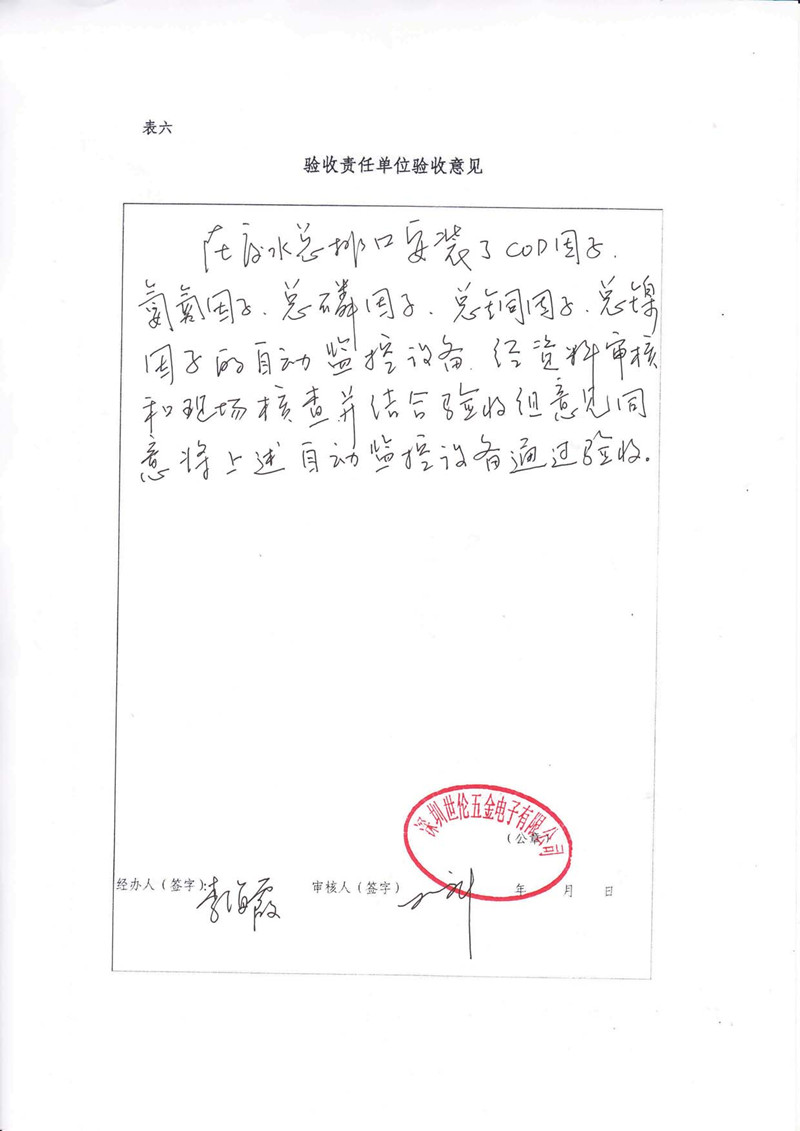 表六
验收责任单位验收意见
在废水总排口安装了COD因子、
氨氮因子、总磷因子、总铜因子、总镍
因子的自动监控设备。经资料审核
和现场核查并结合验收组意见同
意将上述自动监控设备通过验收。
深圳世伦五金电子有限公司
（公章）
经办人（签字）：李海霞 审核人（签字） 年 月 日